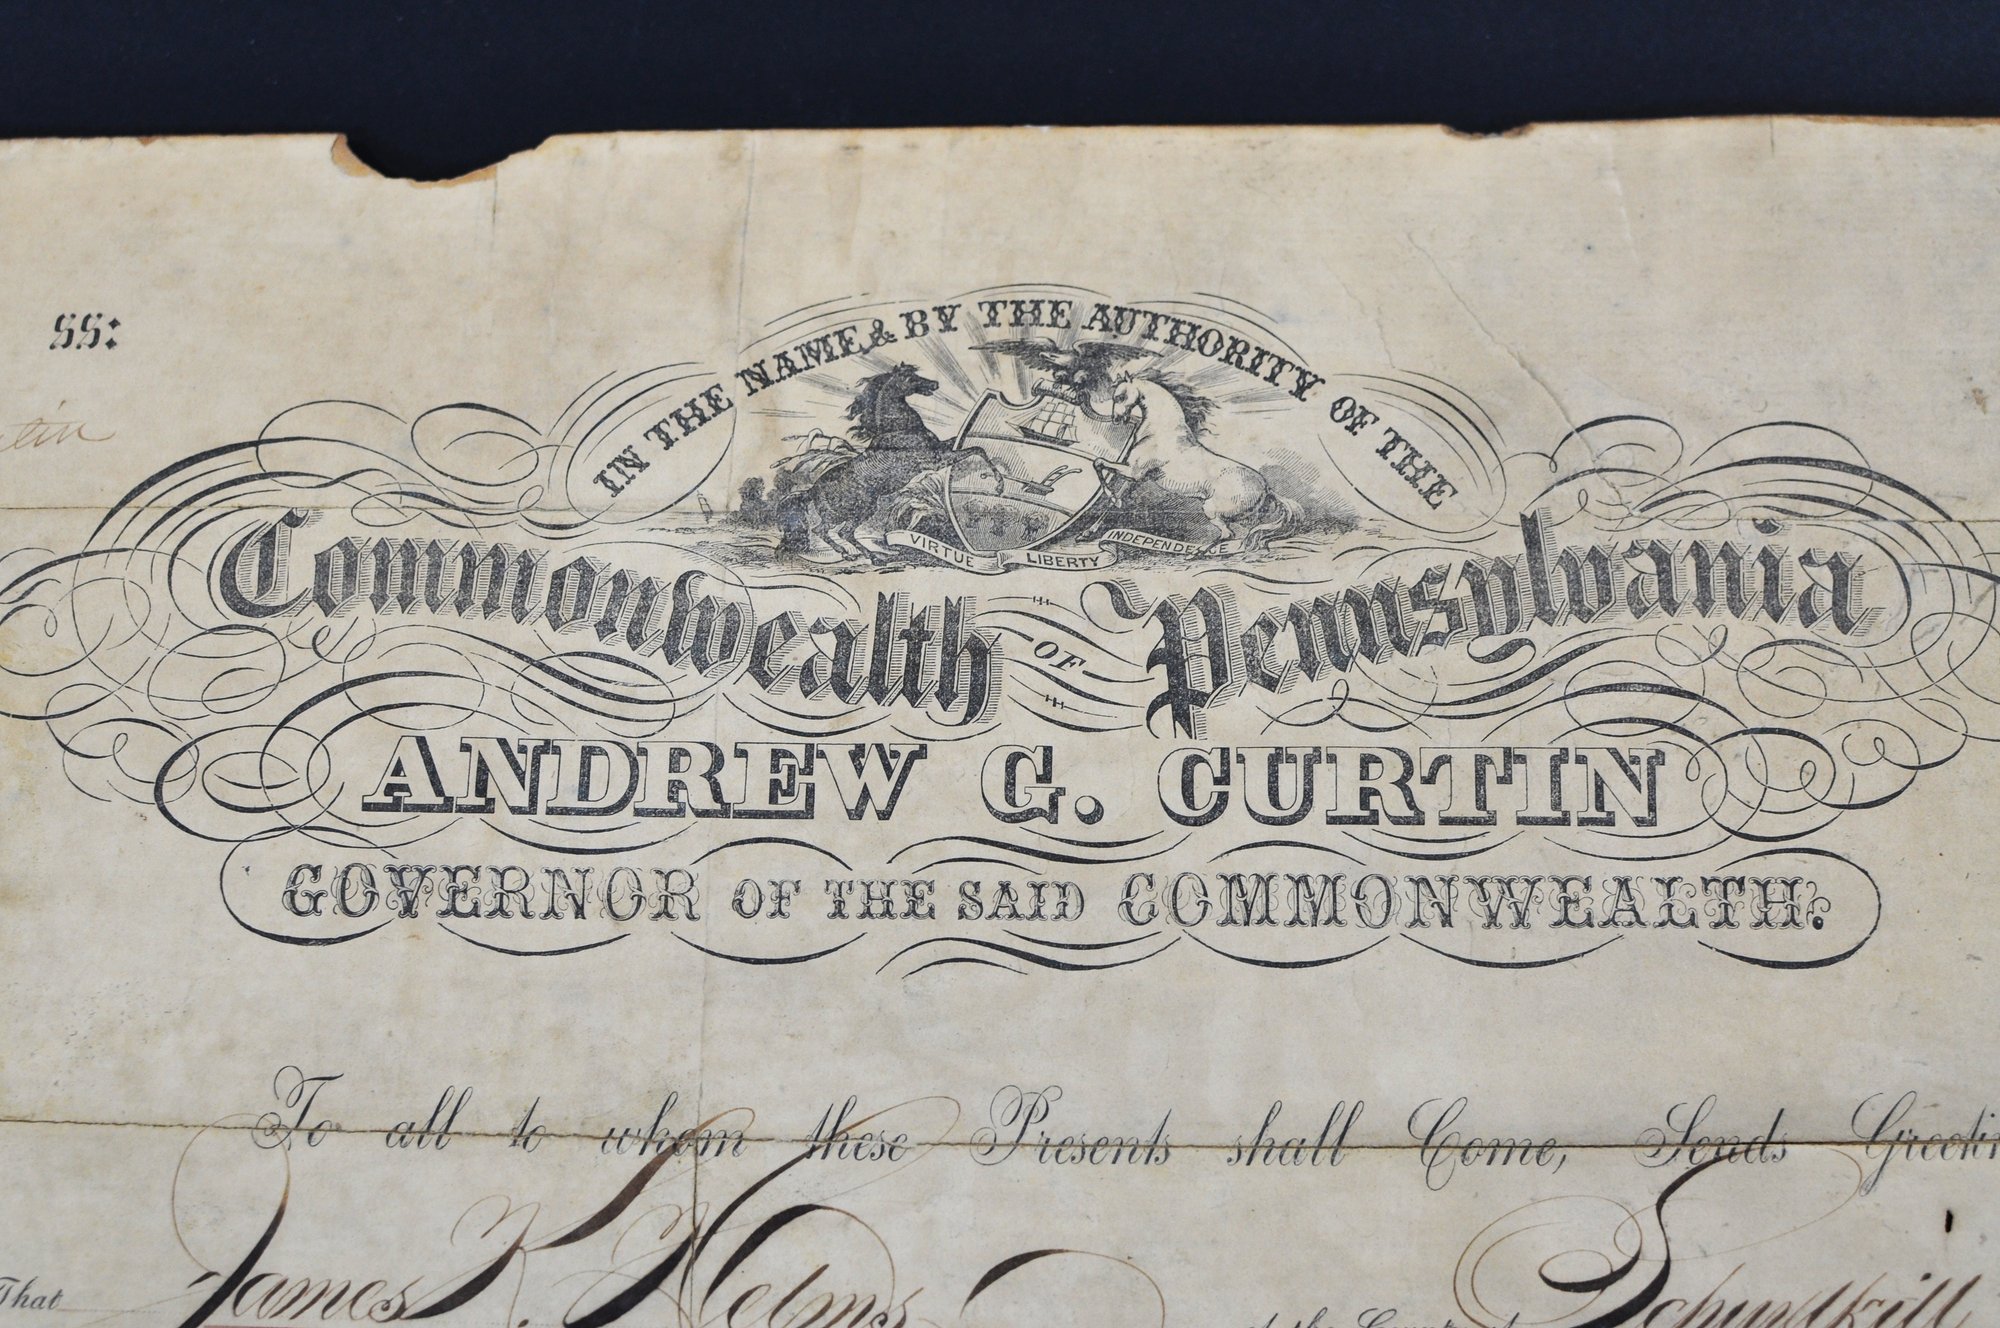 SS:
IN THE NAME & BY THE AUTHORITY OF THE
VIRTUE LIBERTY INDEPENDENCE
Commonwealth OF Pennsylvania
ANDREW G. CURTIN
GOVERNOR OF THE SAID COMMONWEALTH.
To all to whom these Presents shall Come, Sends Greetin
That James K. Helms of the County of Schuylkill